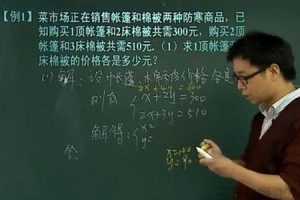 【例1】菜市场正在销售帐篷和棉被两种防寒商品,已
知购买1顶帐篷和2床棉被共需300元,购买2顶
帐篷和3床棉被共需510元.(1)求1顶帐篷
床棉被的价格各是多少元?
(1)解:设
2x+4y=600
则有 { x+2y=300
2x+3y=510
解得:{ x=
y=
答
y=90